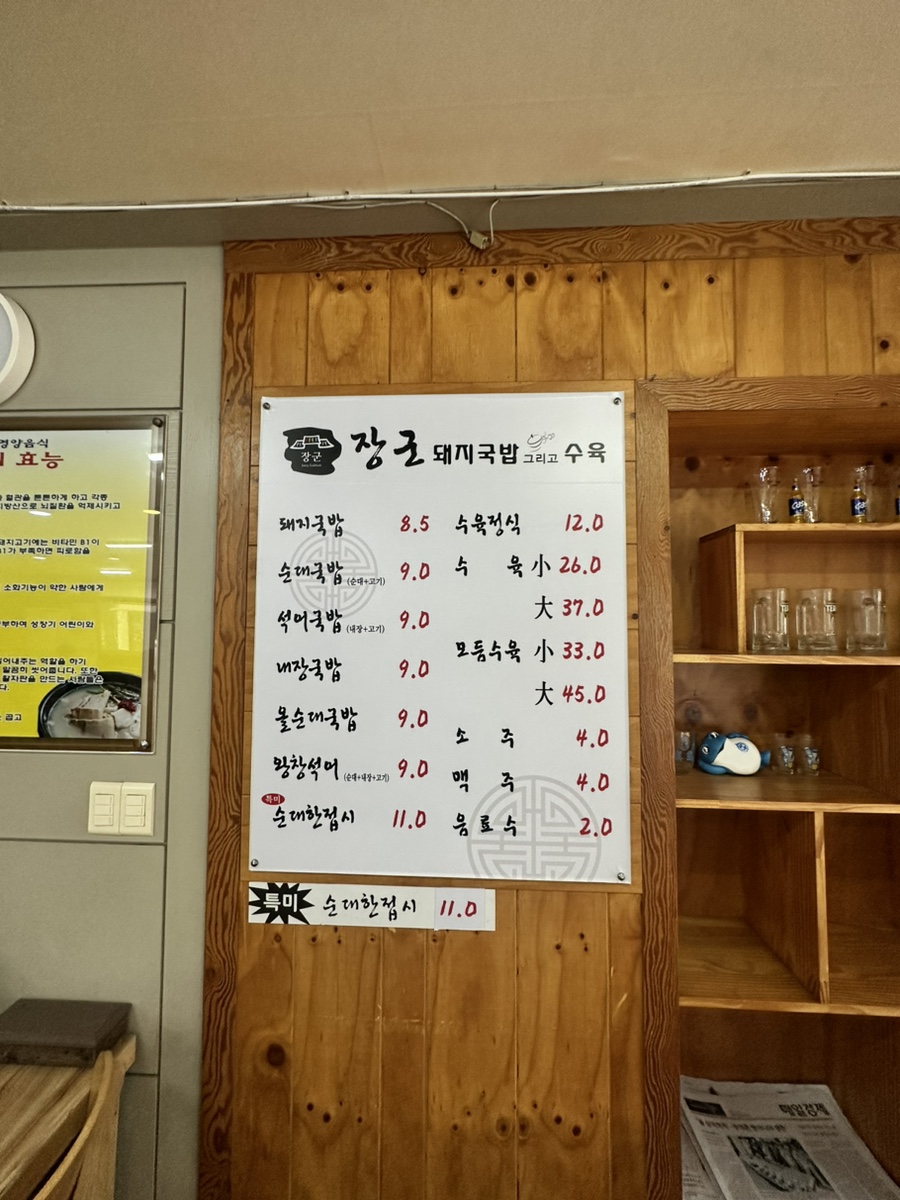 경양음식
효능
혈관을 튼튼하게 하고 각종
지방산으로 뇌질환을 억제시키고
돼지고기에는 비타민 B1이
B1가 부족하면 피로함을
소화기능이 약한 사람에게
부하여 성장기 어린이와
어내주는 역할을 하기
말끔히 씻어줍니다. 또한
다.
곱고
장군
장군 돼지국밥 그리고 수육
돼지국밥 8.5
순대국밥 (순대+고기) 9.0
석어국밥 (내장+고기) 9.0
내장국밥 9.0
올순대국밥 9.0
왕창석어 (순대+내장+고기) 9.0
특미
순대한접시 11.0
수육정식 12.0
수 육 小 26.0
大 37.0
모듬수육 小 33.0
大 45.0
소 주 4.0
맥 주 4.0
음료수 2.0
특미 순대한접시 11.0
매일경제